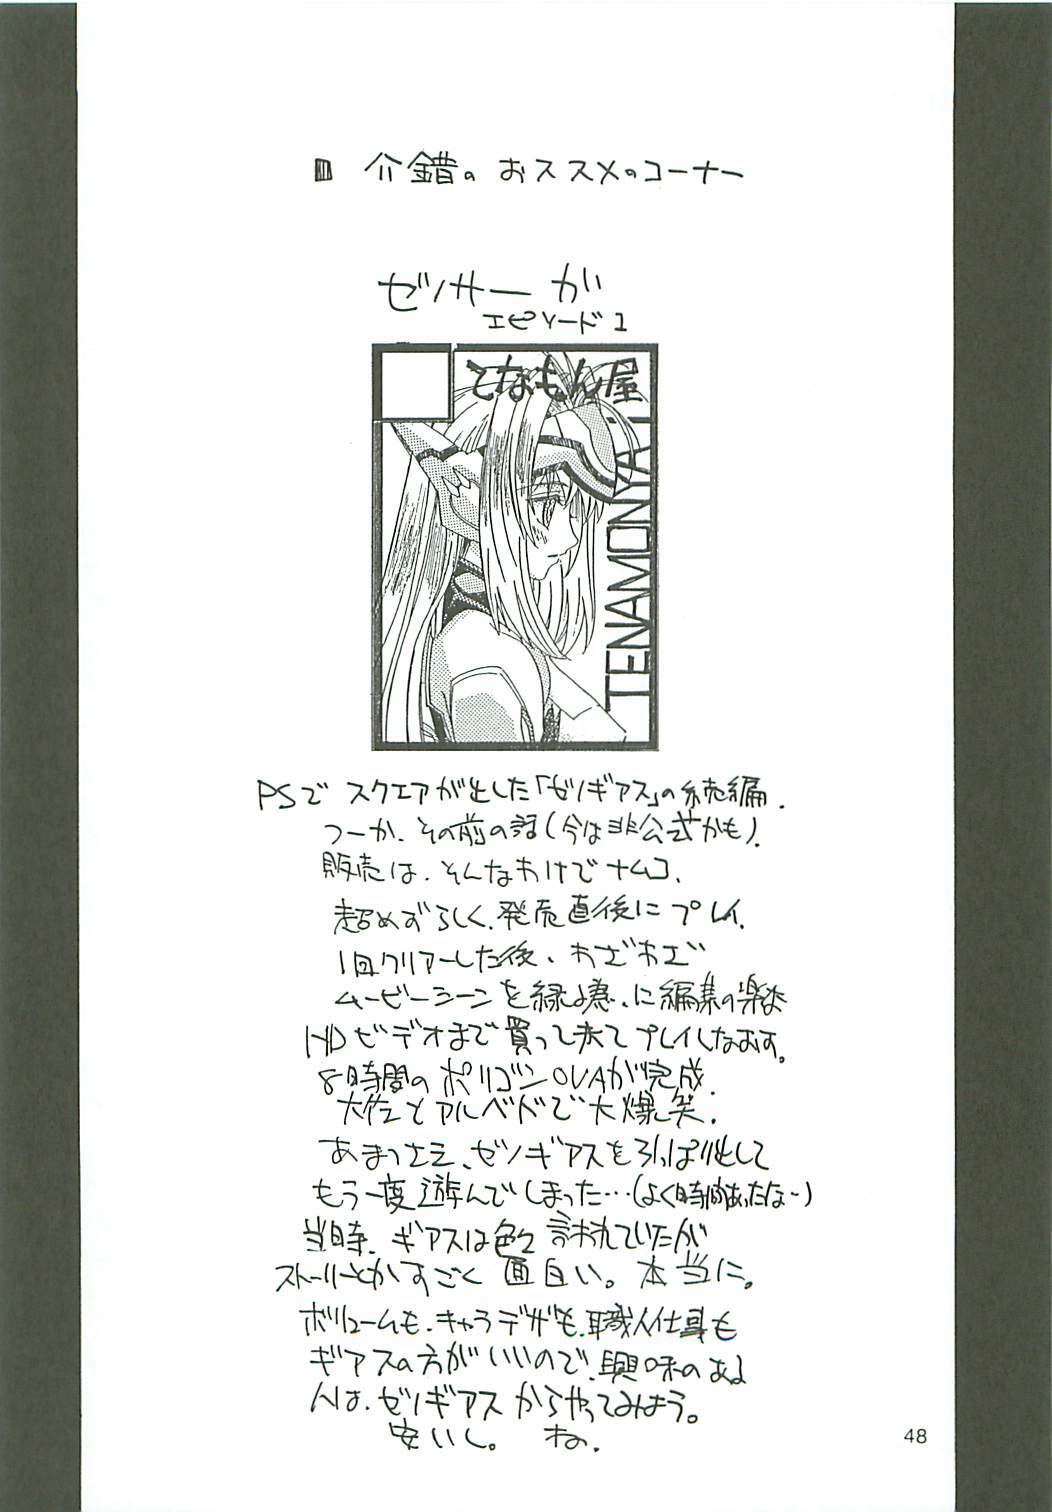 介錯の おススメのコーナー
ゼノサーガ
エピソード1
てなもん屋
TENAMONYA
PSで スクエアが出した「ゼノギアス」の続編.
つーか、その前の話(今は非公式かも).
販売は、そんなわけでナムコ.
超めずらしく、発売直後にプレイ.
1回クリアーした後、わざわざ
ムービーシーンを 編集の為
HDビデオまで買って来てプレイしなおす。
8時間のポリゴンOVAが完成.
大佐とアルベドで大爆笑.
あまつさえ、ゼノギアスを引っぱり出して
もう一度遊んでしまった…(よく時間あったなー)
当時、ギアスは色々言われていたが
ストーリーとかすごく面白い。本当に。
ボリュームも、キャラデザも、職人仕事も
ギアスの方がいいので、興味のある
人は、ゼノギアスからやってみよう。
安いし。 ね.
48